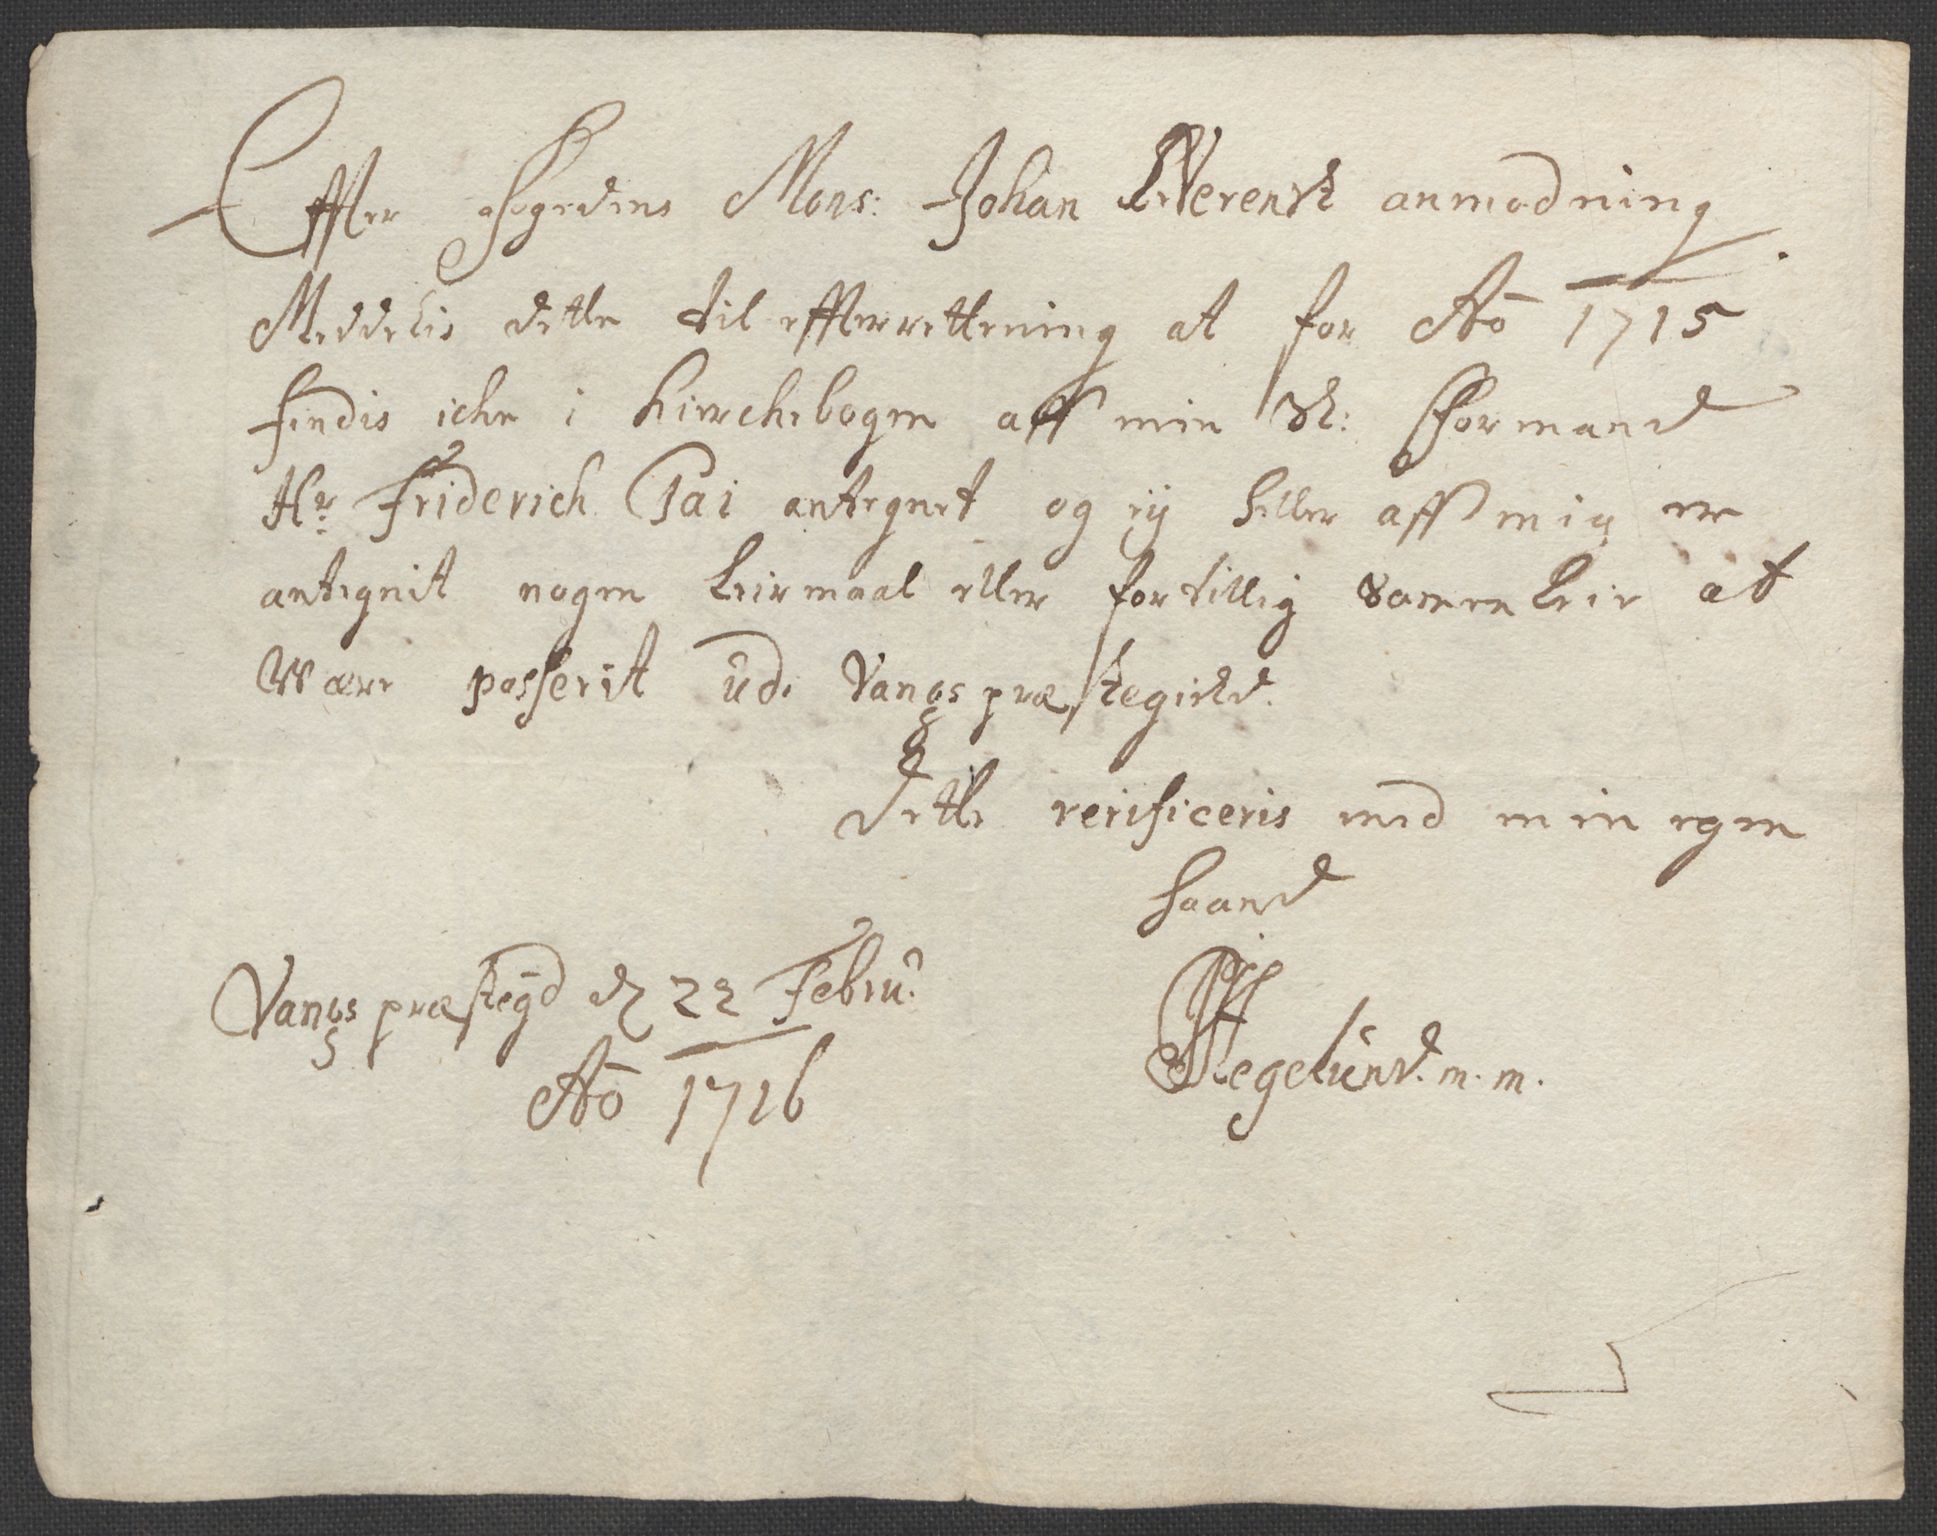 Effter Fogedens Mons: Johan Werensk anmodning
Meddelis dette til effterrettening at for Aõ 1715
findis iche i Kierchebogen aff min Sl: Formand
Hr Friderich Pai antegnet og eij heller aff mig er
antegnit nogen Leirmaal eller fortillig Sammenleie at
Wære passerit ud. Vangs præstegield.
Dette verificeris med min egen
haand
Vangs præstegd d 22 Febru:
Aõ 1716
Hegelund. m. m.